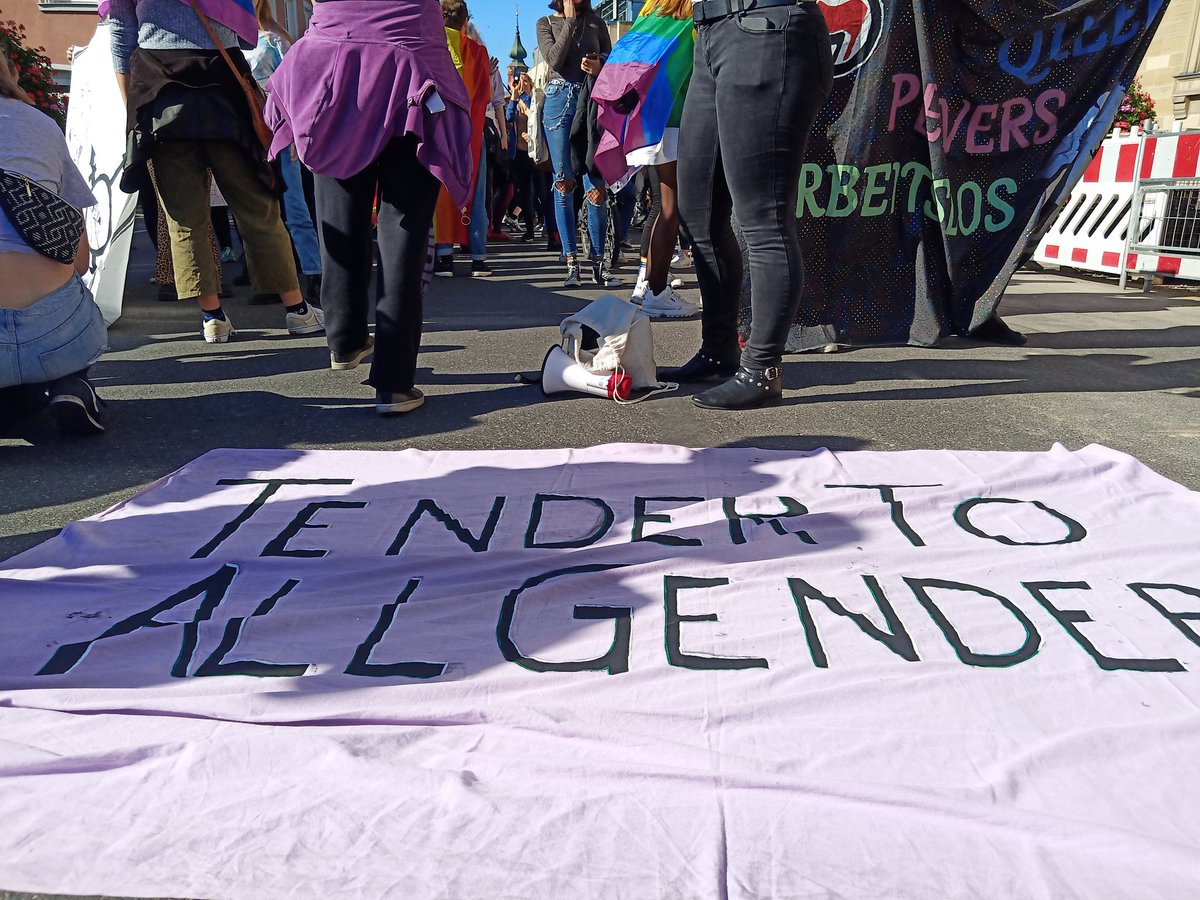 QUEER
PERVERS
RBEITSLOS
TENDER TO
ALL GENDER